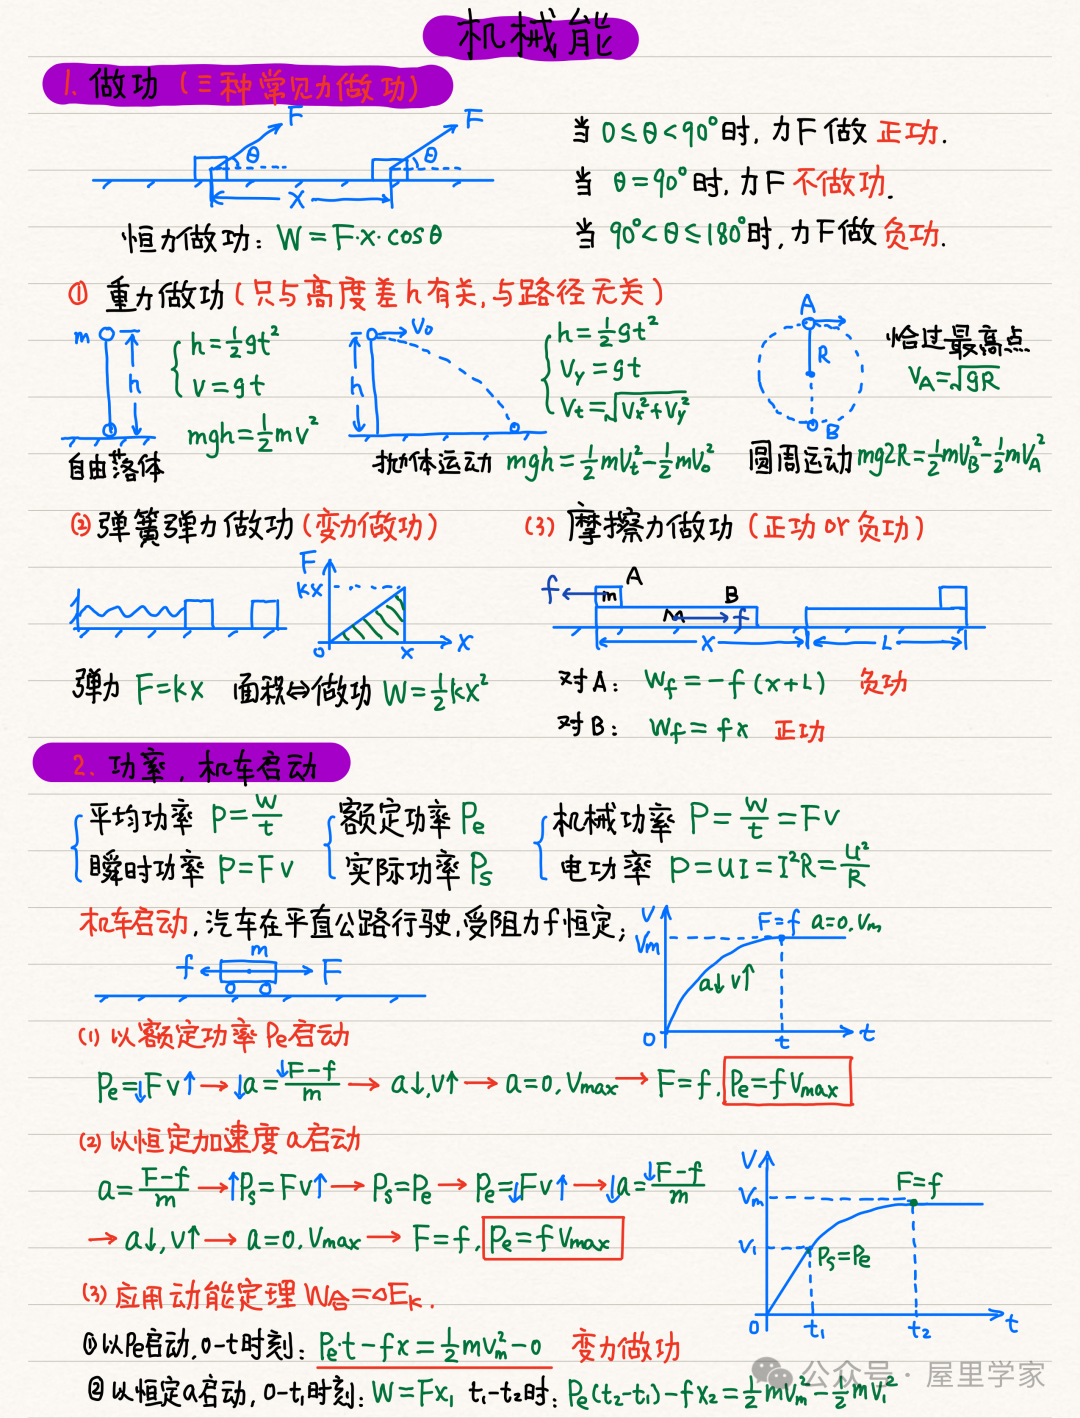 机械能
1. 做功（三种常见力做功）
F F
θ θ
x
当 0≤θ<90°时, 力F做 正功.
当 θ=90°时, 力F 不做功.
当 90°<θ≤180°时, 力F做 负功.
恒力做功: W=F·x·cosθ
① 重力做功(只与高度差h有关,与路径无关)
m h
h=½gt²
v=gt
mgh=½mv²
自由落体
V₀ h
h=½gt²
Vy=gt
Vt=√(Vx²+Vy²)
抛体运动 mgh=½mVt²-½mV₀²
A
R
B
恰过最高点
VA=√gR
圆周运动 mg2R=½mVB²-½mVA²
② 弹簧弹力做功(变力做功)
F
kx
o x x
弹力 F=kx 面积⇔做功 W=½kx²
(3) 摩擦力做功 (正功 or 负功)
f m A
M f B
x L
对A: Wf=-f(x+L) 负功
对B: Wf=fx 正功
2. 功率, 机车启动
平均功率 P=W/t 额定功率 Pe 机械功率 P=W/t=Fv
瞬时功率 P=Fv 实际功率 Ps 电功率 P=UI=I²R=U²/R
机车启动, 汽车在平直公路行驶,受阻力f恒定;
f m F
V
Vm F=f a=0.Vm
a↓ v↑
o t t
(1) 以额定功率Pe启动
Pe=↓Fv↑→↓a=↓F-f/m→a↓,v↑→a=0,Vmax→F=f. Pe=fVmax
(2) 以恒定加速度a启动
a=F-f/m→↑Ps=Fv↑→Ps=Pe→Pe=↓Fv↑→↓a=↓F-f/m
→a↓,v↑→a=0.Vmax→F=f. Pe=fVmax
V
Vm F=f
V₁ Ps=Pe
o t₁ t₂ t
(3) 应用动能定理 W合=△Ek.
①以Pe启动,0-t时刻: Pe·t-fx=½mvm²-0 变力做功
②以恒定a启动, 0-t₁时刻: W=Fx₁ t₁-t₂时: Pe(t₂-t₁)-fx₂=½mVm²-½mV₁²
公众号 · 屋里学家